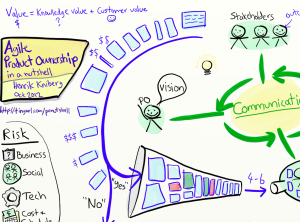 Value = Knowledge value + Customer value
$ ?
Agile
Product Ownership
in a nutshell
Henrik Kniberg
Oct 2012
Stakeholders
PO
vision
Communication
$
$$
$$$
$
Risk
Business
Social
Tech
Cost +
"Yes"
"No"
4-6